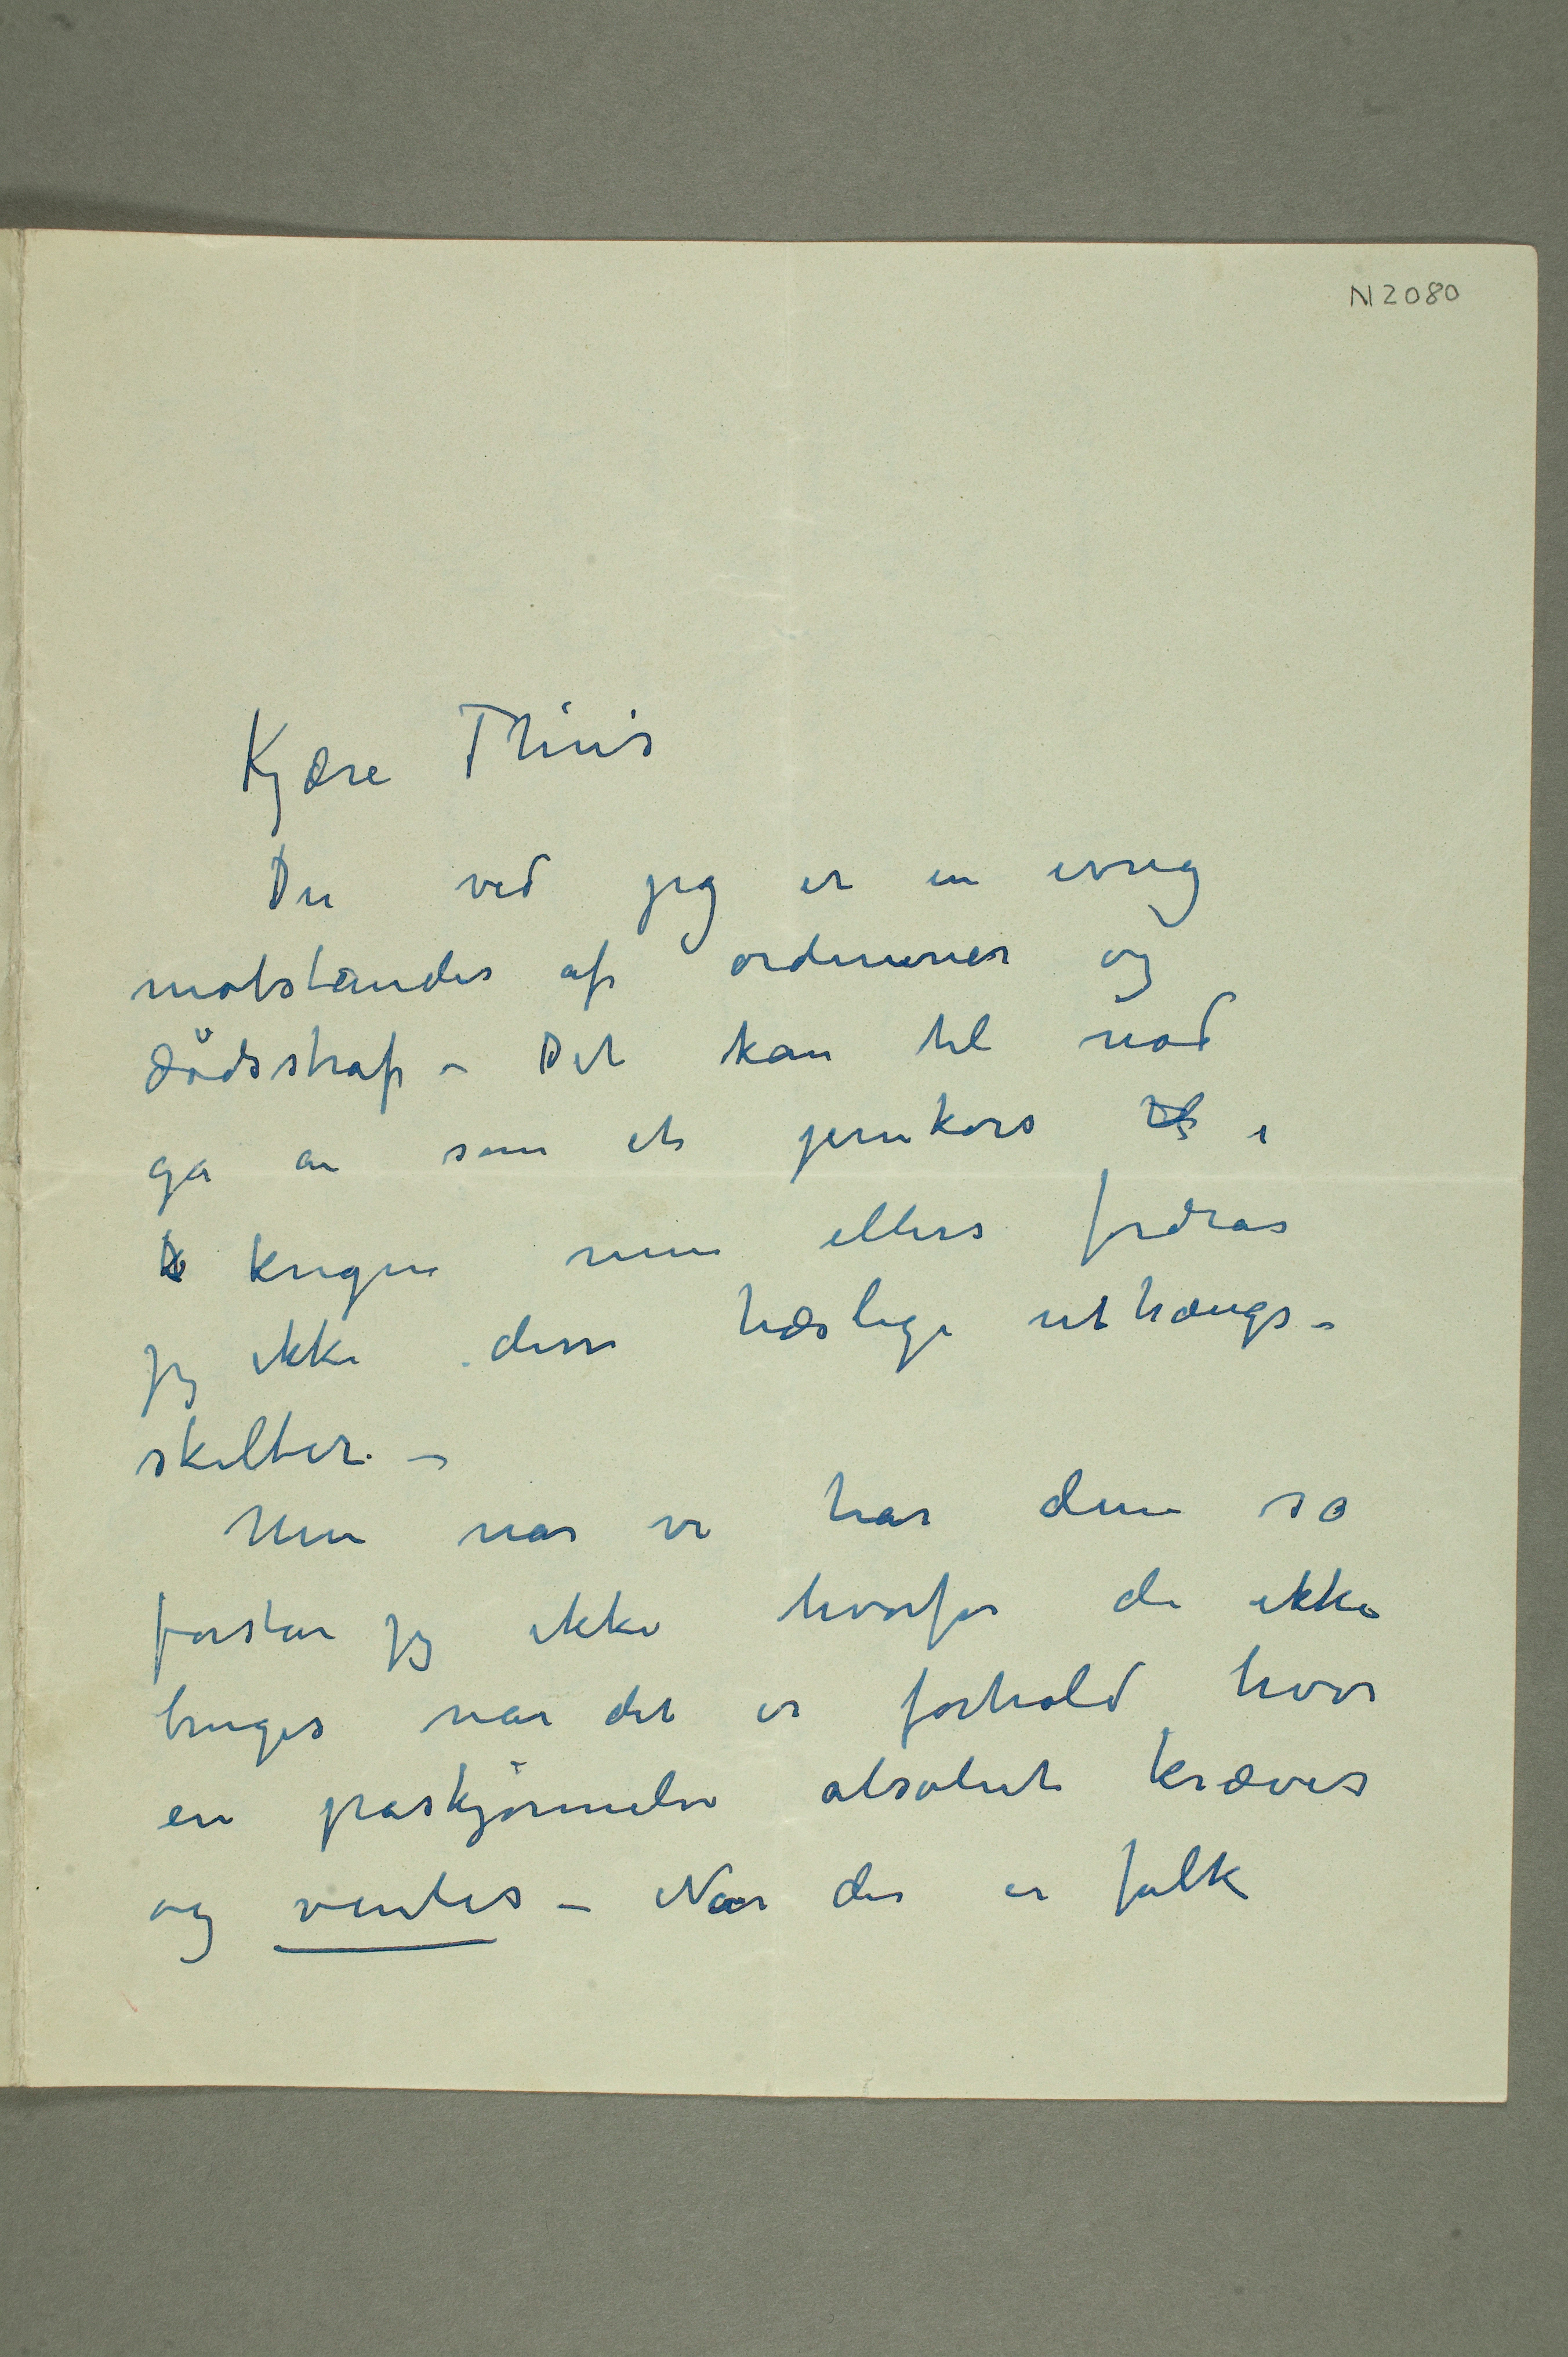 N 2080
Kjære Thiis
Du ved jeg er en ivrig
motstander af ordenener og
dödsstraf – Det kan til nød
ga an som et jernkors i
krigen men ellers fordras
jeg ikke disse hæslige uthængs-
skilter. –
Men nar vi har dem så
forstar jeg ikke hvorfor de ikke
bruges nar det er forhold hvor
en påskjönnelse absolut kræves
og ventes – Nar der er folk